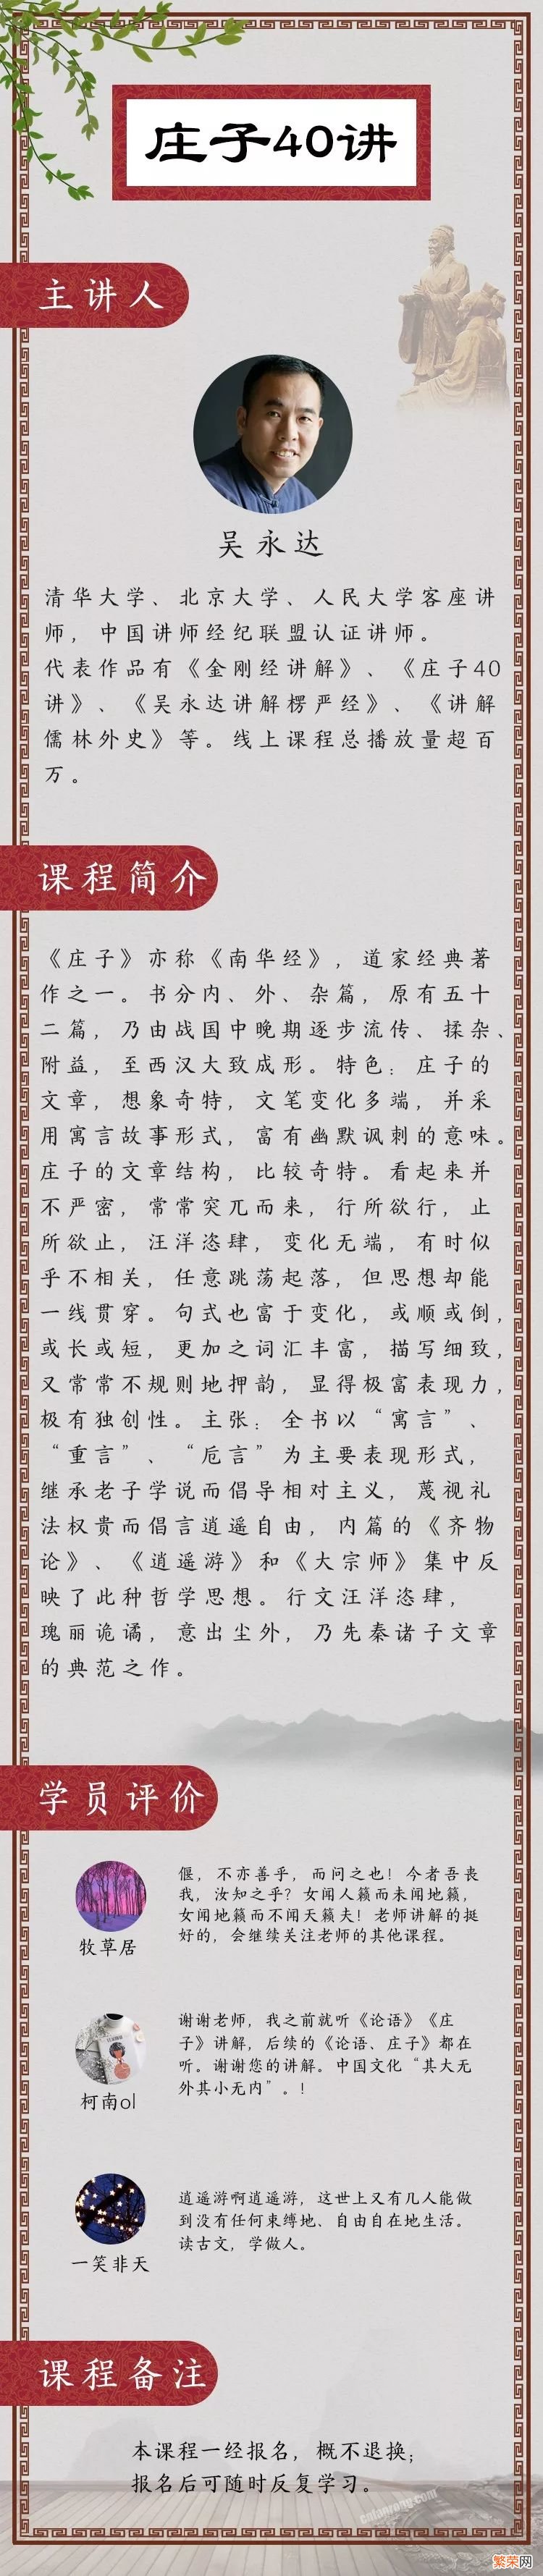 庄子40讲
主讲人
吴永达
清华大学、北京大学、人民大学客座讲
师，中国讲师经纪联盟认证讲师。
代表作品有《金刚经讲解》、《庄子40
讲》、《吴永达讲解楞严经》、《讲解
儒林外史》等。线上课程总播放量超百
万。
课程简介
《庄子》亦称《南华经》，道家经典著
作之一。书分内、外、杂篇，原有五十
二篇，乃由战国中晚期逐步流传、揉杂、
附益，至西汉大致成形。特色：庄子的
文章，想象奇特，文笔变化多端，并采
用寓言故事形式，富有幽默讽刺的意味。
庄子的文章结构，比较奇特。看起来并
不严密，常常突兀而来，行所欲行，止
所欲止，汪洋恣肆，变化无端，有时似
乎不相关，任意跳荡起落，但思想却能
一线贯穿。句式也富于变化，或顺或倒，
或长或短，更加之词汇丰富，描写细致，
又常常不规则地押韵，显得极富表现力，
极有独创性。主张：全书以“寓言”、
“重言”、“卮言”为主要表现形式，
继承老子学说而倡导相对主义，蔑视礼
法权贵而倡言逍遥自由，内篇的《齐物
论》、《逍遥游》和《大宗师》集中反
映了此种哲学思想。行文汪洋恣肆，
瑰丽诡谲，意出尘外，乃先秦诸子文章
的典范之作。
学员评价
偃，不亦善乎，而问之也！今者吾丧
我，汝知之乎？女闻人籁而未闻地籁，
女闻地籁而不闻天籁夫！老师讲解的挺
好的，会继续关注老师的其他课程。
牧草居
谢谢老师，我之前就听《论语》《庄
子》讲解，后续的《论语、庄子》都在
听。谢谢您的讲解。中国文化“其大无
外其小无内”。！
柯南ol
逍遥游啊逍遥游，这世上又有几人能做
到没有任何束缚地、自由自在地生活。
读古文，学做人。
一笑非天
课程备注
本课程一经报名，概不退换；
报名后可随时反复学习。
繁荣网